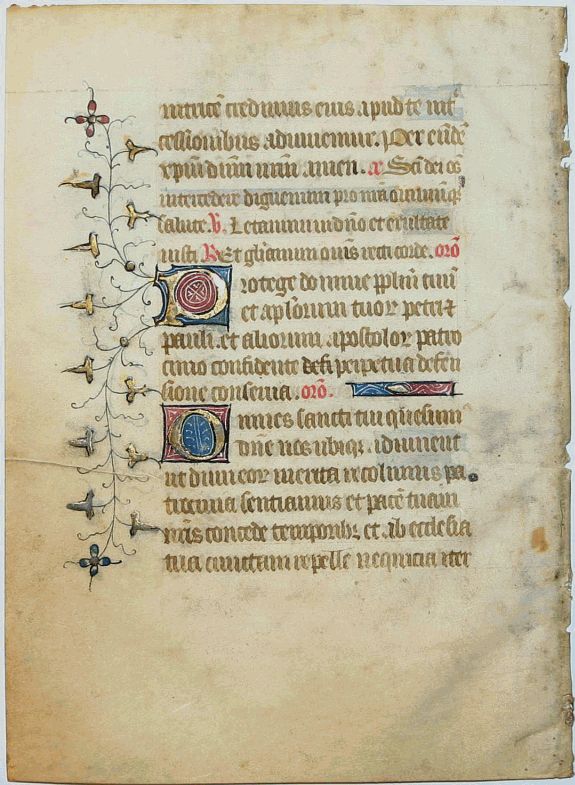 nitricē credimus eius apud te int̄
cessionibus adiuuemur. Per eūdē
xp̄m dn̄m nr̄m amen. a͞ Sc̄i dei oē̄s
intercedere dignemini pro nr̄a om̄iumq̄ꝫ
salute. V̄. Letamini in dn̄o et exultate
iusti R̄ Et gl̄iamini om̄s recti corde. or̄o
Protege domine pplm̄ tuū
et ap̄lorum tuoꝝ petri ⁊
pauli. et aliorum apostoloꝝ patro
cinio confidente defēs perpetua defen
sione conserua. or̄o.
Omnes sancti tui quesum̄
dn̄e nos ubiqꝫ adiuuent
ut dum eoꝝ merita recolimus pa
trocinia sentiamus et pacē tuam
nr̄is concede temporibꝫ et ab ecclesia
tua cunctam repelle nequicia iter